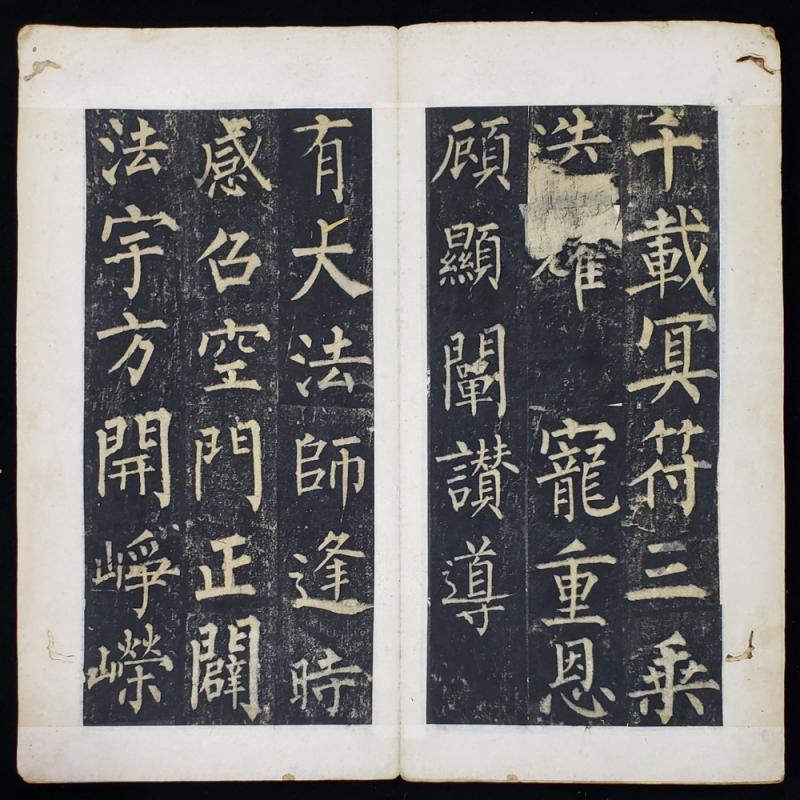 千載冥符三乘
寵重恩
顧顯闡讚導
有大法師逢時
感召空門正闢
法宇方開崢嶸